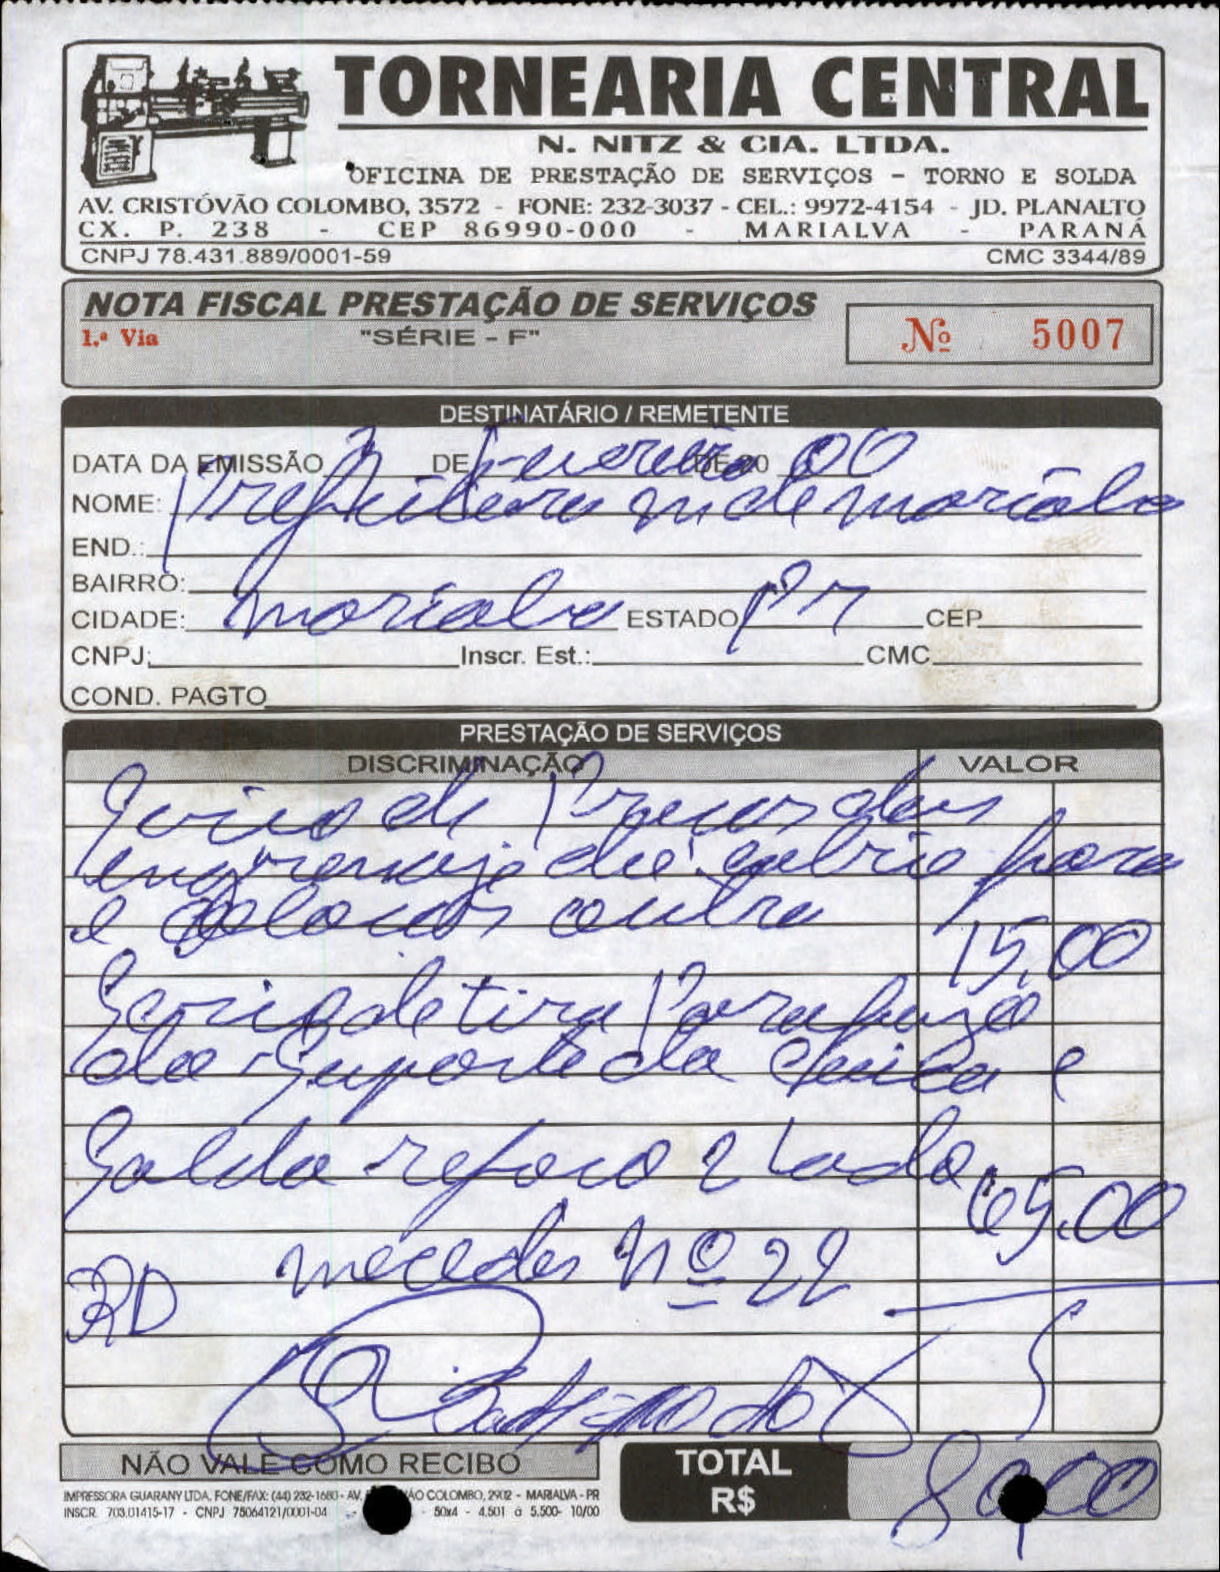 TORNEARIA CENTRAL
N. NITZ & CIA. LTDA.
OFICINA DE PRESTAÇÃO DE SERVIÇOS - TORNO E SOLDA
AV. CRISTÓVÃO COLOMBO, 3572 - FONE: 232-3037 - CEL.: 9972-4154 - JD. PLANALTO
CX. P. 238 - CEP 86990-000 - MARIALVA - PARANÁ
CNPJ 78.431.889/0001-59 CMC 3344/89
NOTA FISCAL PRESTAÇÃO DE SERVIÇOS
1.ª Via "SÉRIE - F" Nº 5007
DESTINATÁRIO / REMETENTE
DATA DA EMISSÃO DE DE 20 00
NOME: Prefeitura m de marialva
END.:
BAIRRO:
CIDADE: marialva ESTADO Pr CEP
CNPJ: Inscr. Est.: CMC
COND. PAGTO
PRESTAÇÃO DE SERVIÇOS
DISCRIMINAÇÃO VALOR
de
para
e outra 15,00
de tira Parafuzo
da Suporte da e
Solda 2 lado 65,00
nº 22
TOTAL
NÃO VALE COMO RECIBO
R$ 80,00
IMPRESSORA GUARANY LTDA, FONE/FAX: (44) 232-1680 - AV. COLOMBO, 2902 - MARIALVA - PR
INSCR. 703.01415-17 - CNPJ 75064121/0001-04 - 50x4 - 4.501 à 5.500- 10/00